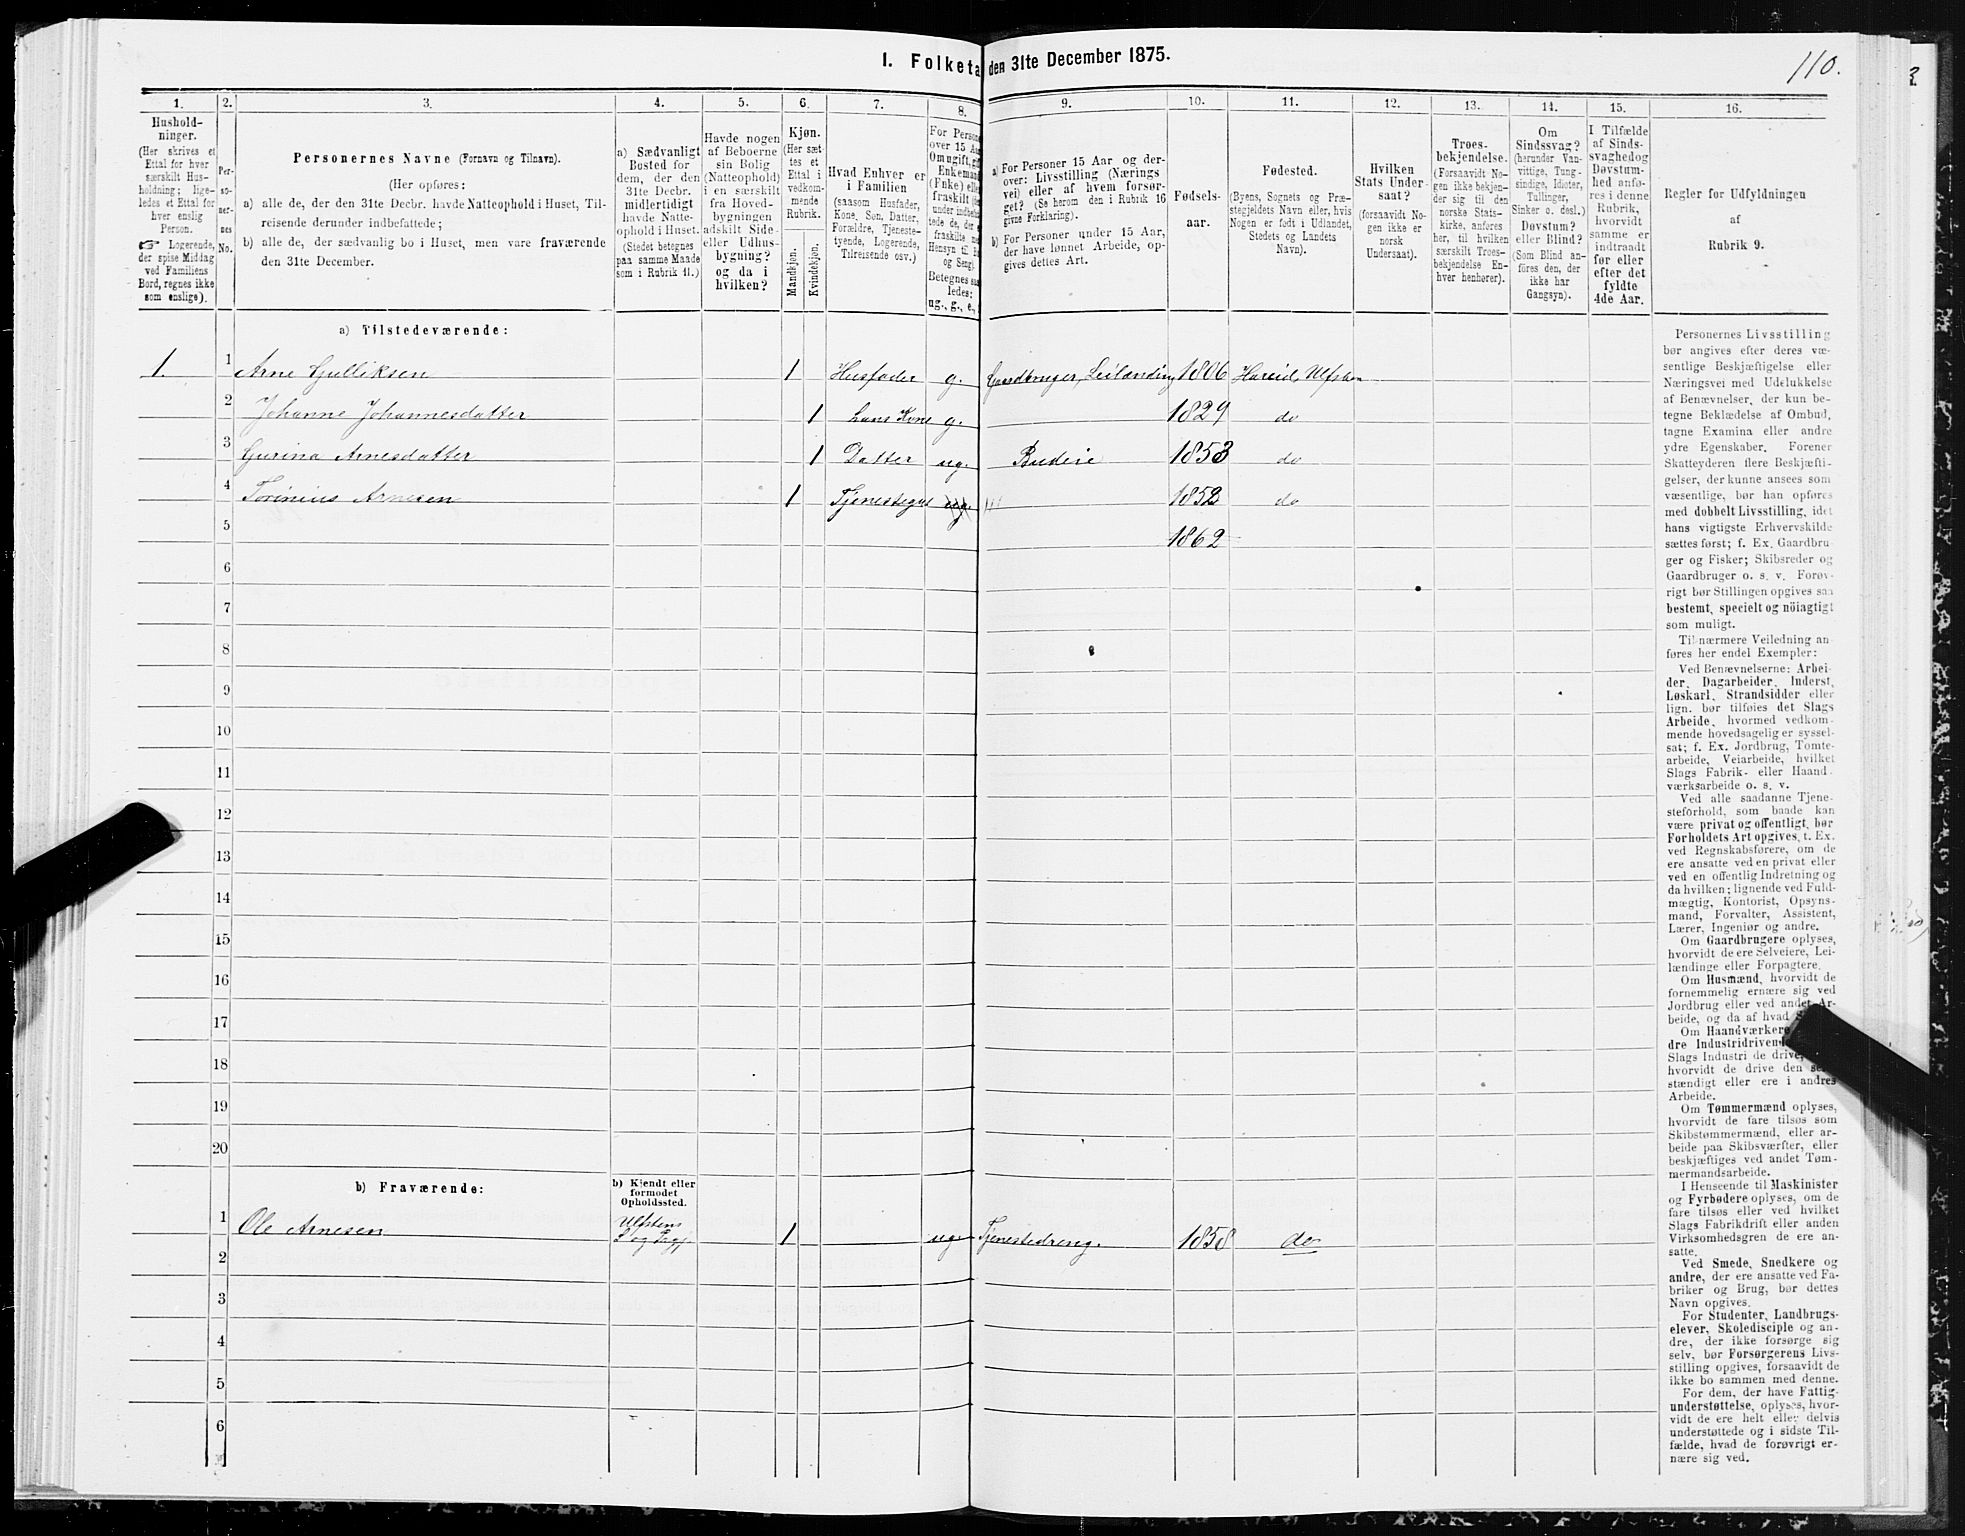 I. Folketa den 31te December 1875.
110.
1. 2. 3. 4. 5. 6. 7. 8. 9. 10. 11. 12. 13. 14. 15. 16.
Hushold-
ninger.
(Her skrives et
Ettal for hver
særskilt Hus-
holdning; lige-
ledes et Ettal for
hver enslig
Person.
☞ Logerende,
der spise Middag
ved Familiens
Bord, regnes ikke
som enslige).
Per-
so-
ner-
nes
No.
Personernes Navne (Fornavn og Tilnavn).
(Her opføres:
a) alle de, der den 31te Decbr. havde Natteophold i Huset, Til-
reisende derunder indbefattede;
b) alle de, der sædvanlig bo i Huset, men vare fraværende
den 31te December.
a) Sædvanligt
Bosted for
dem, der den
31te Decbr.
midlertidigt
havde Natte-
ophold i Huset.
(Stedet betegnes
paa samme Maade
som i Rubrik 11.)
Havde nogen
af Beboerne
sin Bolig
(Natteophold)
i en særskilt
fra Hoved-
bygningen
adskilt Side-
eller Udhus-
bygning?
og da i
hvilken?
Kjøn.
(Her sæt-
tes et
Ettal i
vedkom-
mende
Rubrik.
Mandkjøn.
Kvindekjøn.
Hvad Enhver er
i Familien
(saasom Husfader,
Kone, Søn, Datter,
Forældre, Tjeneste-
tyende, Logerende,
Tilreisende osv.)
For Persone
over 15 Aa
Om ugift, gif
Enkemand
(Enke) elle
fraskilt
under indbefat
tede de, der e
fraskilte
Hensyn til B
og Seng).
Betegnes saa
ledes:
ug., g., e.,
a) For Personer 15 Aar og der-
over: Livsstilling (Nærings
vei) eller af hvem forsør-
get? (Se herom den i Rubrik 16
givne Forklaring).
b) For Personer under 15 Aar,
der have lønnet Arbeide, op-
gives dettes Art.
Fødsels-
aar.
Fødested.
(Byens, Sognets og Præ-
stegjeldets Navn eller, hvis
Nogen er født i Udlandet,
Stedets og Landets
Navn).
Hvilken
Stats Under-
saat?
(forsaavidt No-
gen ikke er
norsk
Undersaat).
Troes-
bekjendelse.
(Forsaavidt No-
gen ikke bekjen-
der sig til den
norske Stats-
kirke, anføres
her, til hvilken
særskilt Troes-
bekjendelse En-
hver henhører).
Om
Sindssvag?
(herunder Van-
vittige, Tung-
sindige, Idioter,
Tullinger,
Sinker o. desl.)
Døvstum?
eller Blind?
(Som Blind an-
føres den, der
ikke har
Gangsyn).
I Tilfælde
af Sinds-
svaghedog
Døvstum-
hed anfø-
res i denne
Rubrik,
hvorvidt
samme er
indtraadt
før eller
efter det
fyldte
4de Aar.
Regler for Udfyldningen
af
Rubrik 9.
a) Tilstedeværende:
1. 1 Arne Gulliksen 1 Husfader g. Gaardbruger, Leilænding 1806 Hareid, Ulfsten
2 Johanne Johannesdatter 1 hans Kone g. 1829 do
3 Gurina Arnesdatter 1 Datter ug. Budeie 1853 do
4 Torinius Arnesen 1 Tjenestegut ug. 1852 do
5 1862
6
7
8
9
10
11
12
13
14
15
16
17
18
19
20
b) Fraværende:
b) Kjendt eller
formodet
Opholdssted.
1 Ole Arnesen Ulfstens
S og Prgj. 1 ug. Tjenestedreng. 1858 do
2
3
4
5
6
Personernes Livsstilling
bør angives efter deres væ-
sentlige Beskjæftigelse eller
Næringsvei med Udelukkelse
af Benævnelser, der kun be-
tegne Beklædelse af Ombud,
tagne Examina eller andre
ydre Egenskaber. Forener
Skatteyderen flere Beskjæfti-
gelser, der kunne ansees som
væsentlige, bør han opføres
med dobbelt Livsstilling, idet
hans vigtigste Erhvervskilde
sættes først; f. Ex. Gaardbru-
ger og Fisker; Skibsreder og
Gaardbruger o. s. v. Forøv-
rigt bør Stillingen opgives saa
bestemt, specielt og nöiagtigt
som muligt.
Til nærmere Veiledning an-
føres her endel Exempler:
Ved Benævnelserne: Arbei-
der, Dagarbeider, Inderst,
Løskarl, Strandsidder eller
lign. bør tilføies det Slags
Arbeide, hvormed vedkom-
mende hovedsagelig er syssel-
sat; f. Ex. Jordbrug, Tomte-
arbeide, Veiarbeide, hvilket
Slags Fabrik- eller Haand-
værksarbeide o. s. v.
Ved alle saadanne Tjene-
steforhold, som baade kan
være privat og offentligt, bør
Forholdets Art opgives, t. Ex.
ved Regnskabsførere, om de
ere ansatte ved en privat eller
ved en offentlig Indretning og
da hvilken; lignende ved Fuld-
mægtig, Kontorist, Opsyns-
mand, Forvalter, Assistent,
Lærer, Ingeniør og andre.
Om Gaardbrugere oplyses,
hvorvidt de ere Selveiere, Lei-
lændinge eller Forpagtere.
Om Husmænd, hvorvidt de
fornemmelig ernære sig ved
Jordbrug eller ved andet Ar-
beide, og da af hvad S
Om Haandværkere
dre Industridrivend
Slags Industri de drive,
hvorvidt de drive den sel
stændigt eller ere i andres
Arbeide.
Om Tømmermænd oplyses,
hvorvidt de fare tilsøs som
Skibstømmermænd, eller ar-
beide paa Skibsværfter, eller
beskjæftiges ved andet Tøm-
mermandsarbeide.
I Henseende til Maskinister
og Fyrbødere oplyses, om de
fare tilsøs eller ved hvilket
Slags Fabrikdrift eller anden
Virksomhedsgren de ere an-
satte.
Ved Smede, Snedkere og
andre, der ere ansatte ved Fa-
briker og Brug, bør dettes
Navn opgives.
For Studenter, Landbrugs-
elever, Skoledisciple og an-
dre, der ikke forsørge sig
selv, bør Forsørgerens Livs-
stilling opgives, forsaavidt de
ikke bo sammen med denne.
For dem, der have Fattig-
understøttelse, oplyses, hvor-
vidt de ere helt eller delvis
understøttede og i sidste Til-
fælde, hvad de forøvrigt er-
nære sig ved.